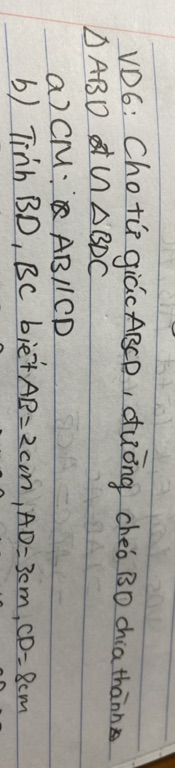 VD6: Cho tứ giác ABCD, đường chéo BD chia thành
Δ ABD ᔕ Δ BDC
a) CM: AB // CD
b) Tính BD, BC biết AB = 2cm, AD = 3cm, CD = 8cm